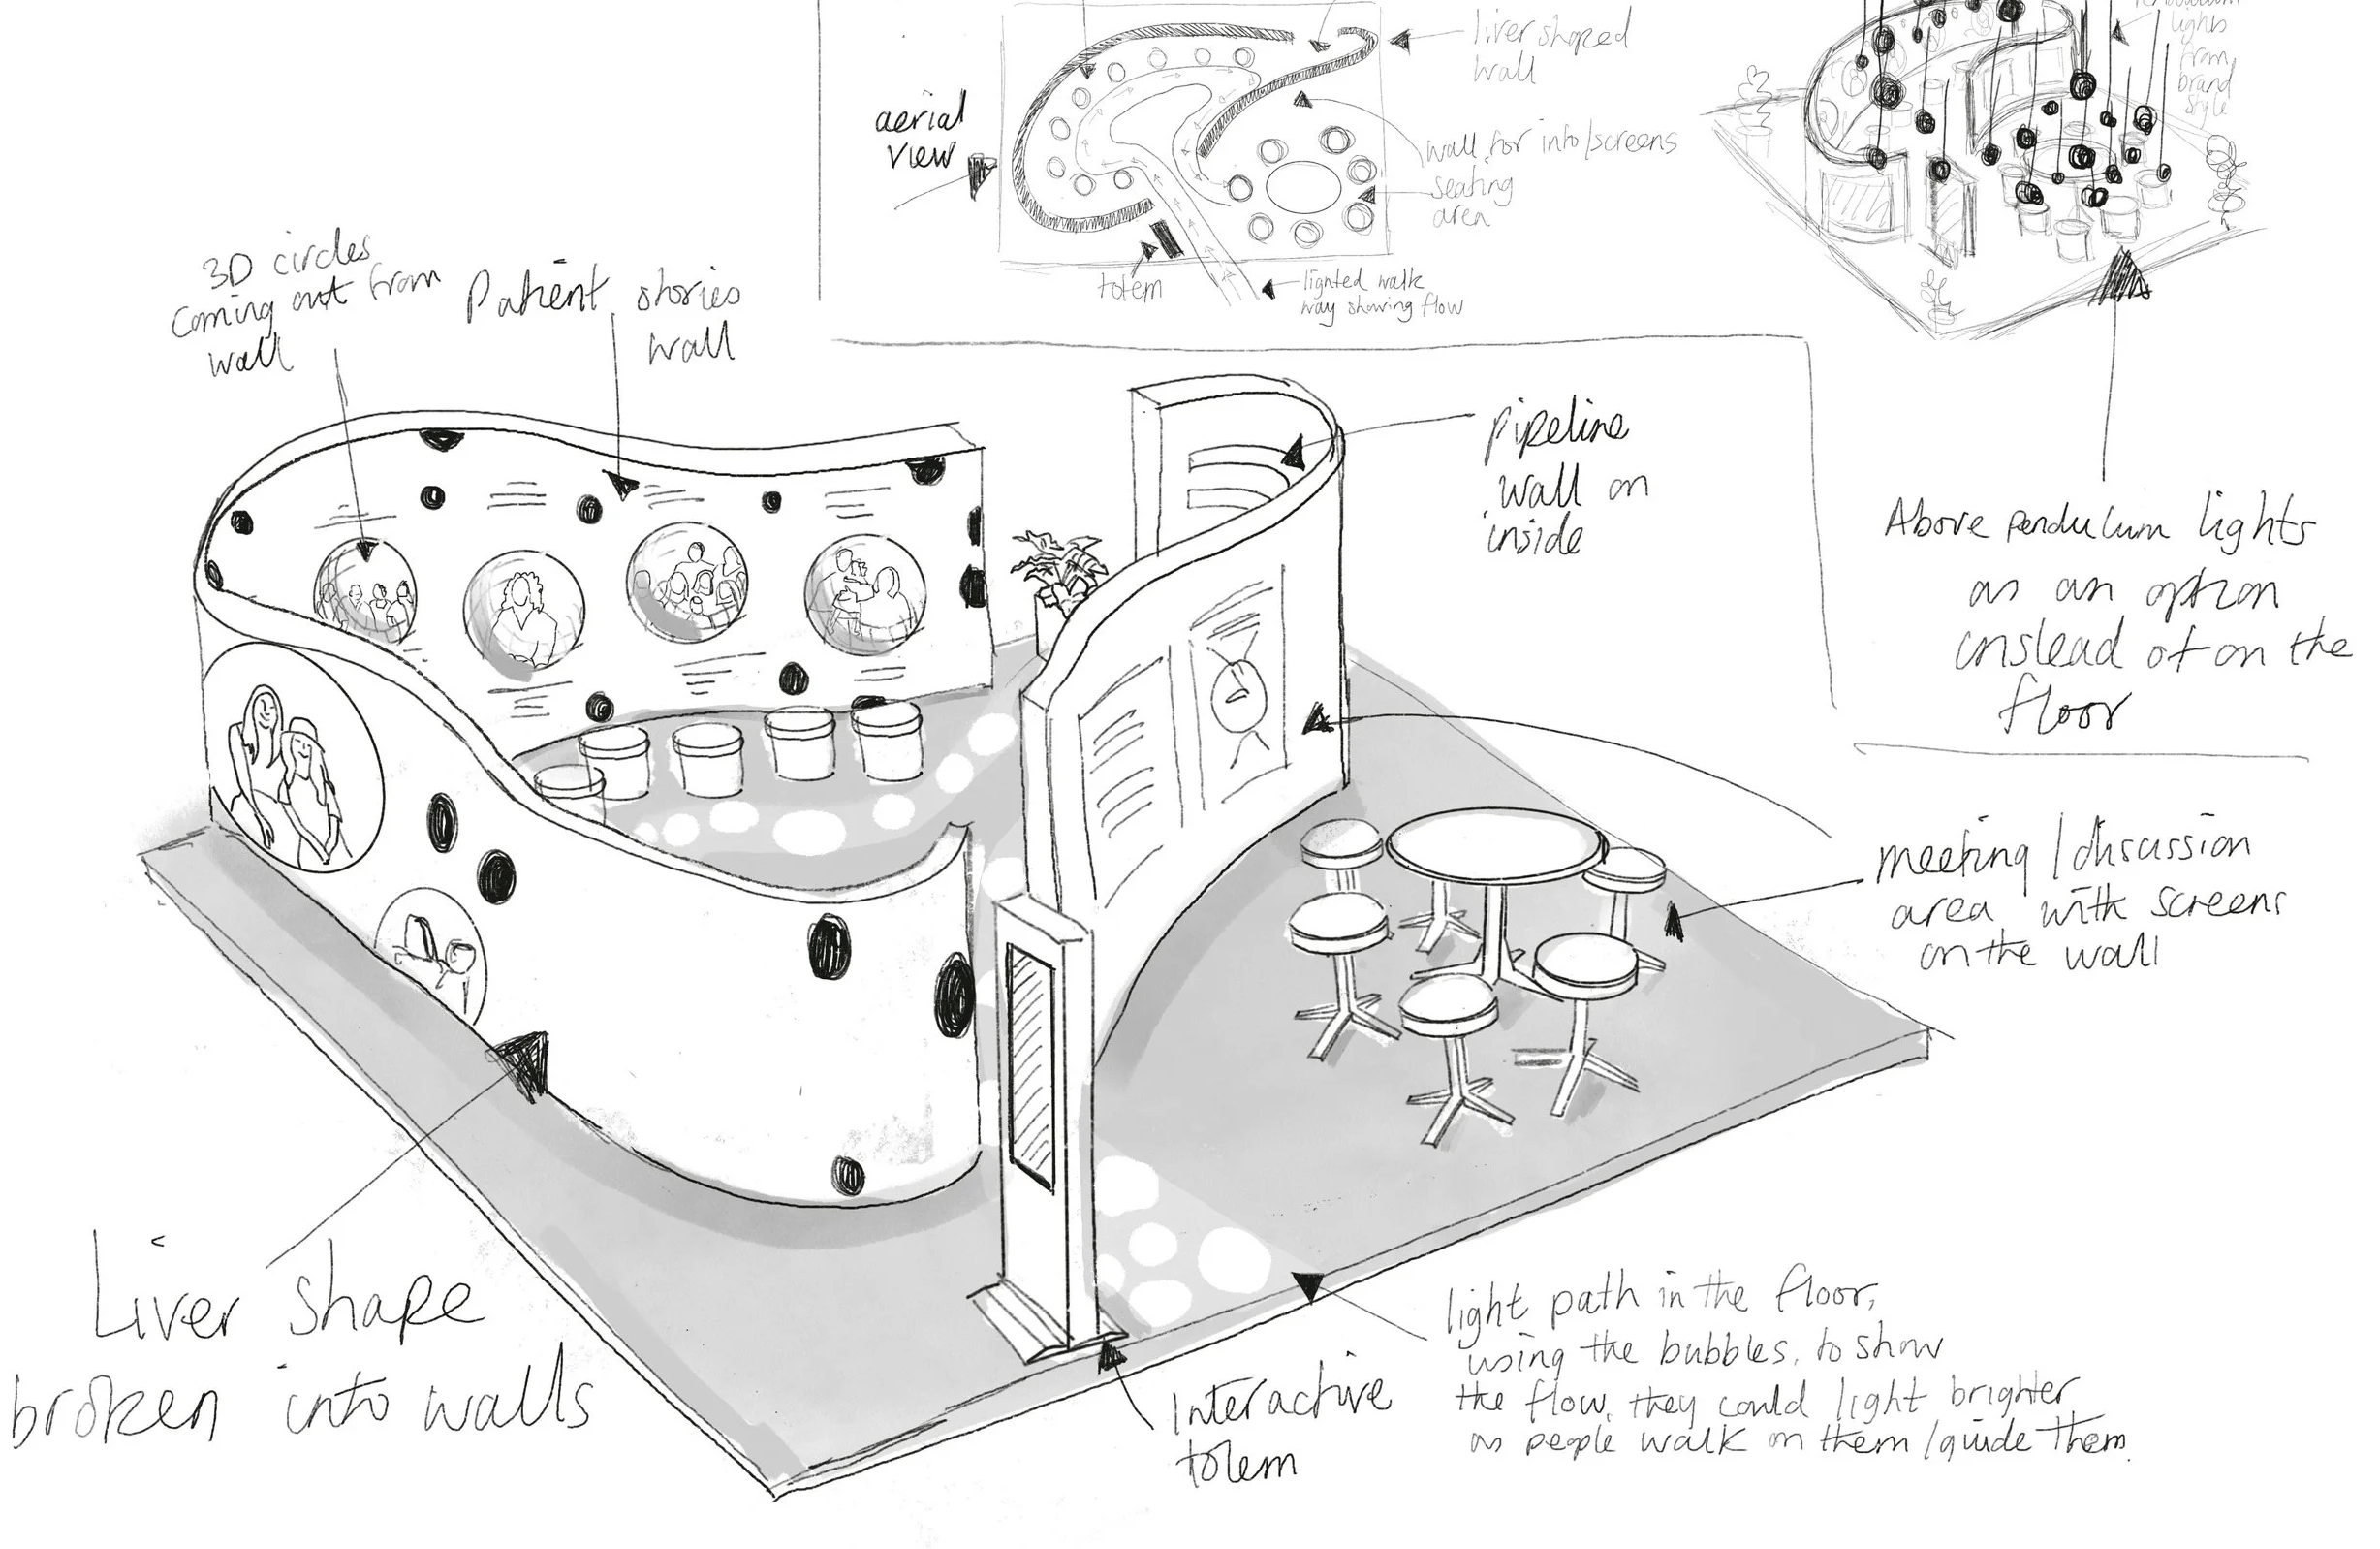 liver shaped
wall
aerial
view
wall for info/screens
seating
area
totem
lighted walk
way showing flow
lights
from
brand
style
3D circles
coming out from
wall
Patient stories
wall
pipeline
wall on
inside
Above pendulum lights
as an option
instead of on the
floor
meeting / discussion
area with screens
on the wall
Liver shape
broken into walls
Interactive
totem
light path in the floor,
using the bubbles, to show
the flow, they could light brighter
as people walk on them / guide them.